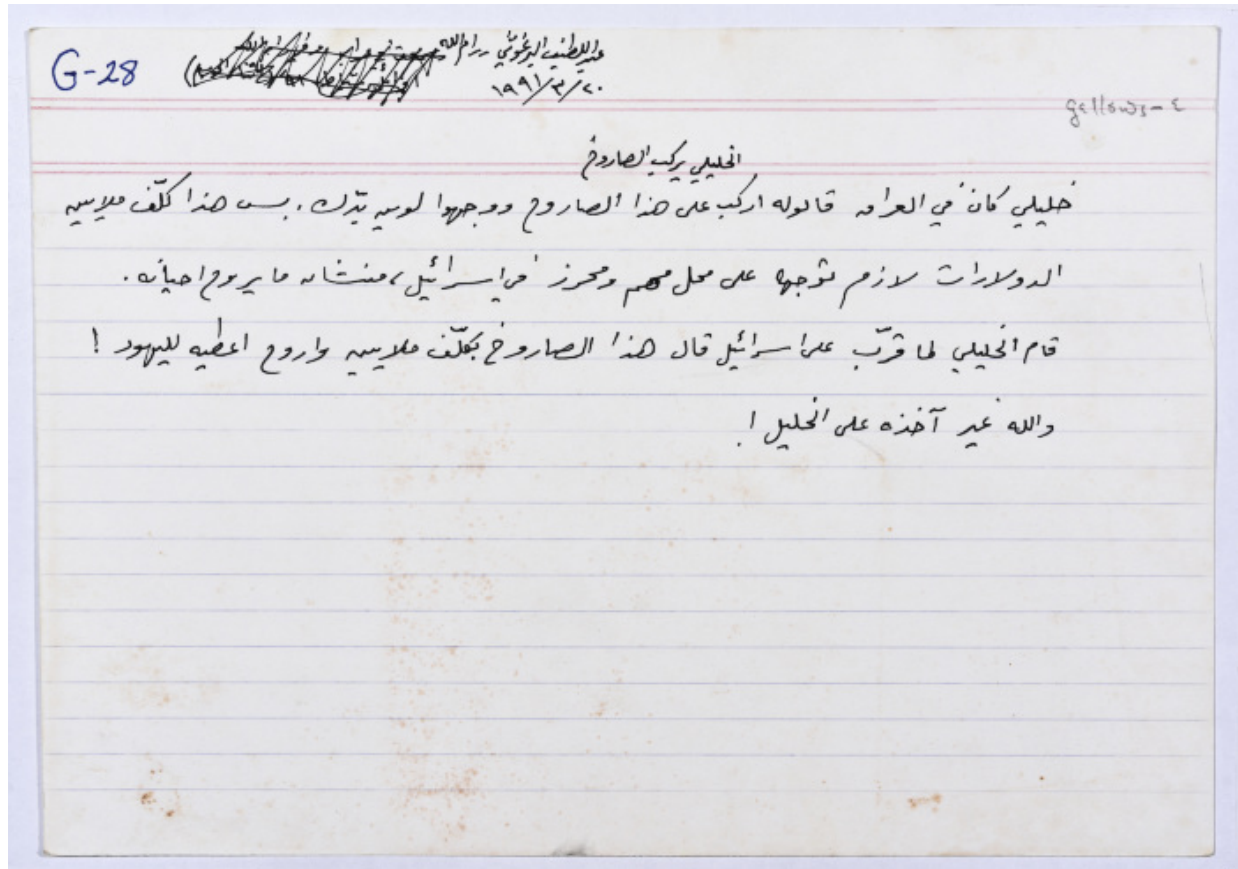 G-28
عبد اللطيف البرغوثي رام الله
٢٠/٣/١٩٩١
gallows-٤
الخليلي يركب الصاروخ
خليلي كان في العراق قالوله اركب على هذا الصاروخ ووجهوا لوين بدّك. بس هذا كلّف ملايين
الدولارات لازم توجهه على محل مهم ومحرز في اسرائيل، منشان ما يروح احيانه.
قام الخليلي لما قرّب على اسرائيل قال هذا الصاروخ بكلّف ملايين واروح اعطيه لليهود !
والله غير آخذه على الخليل !